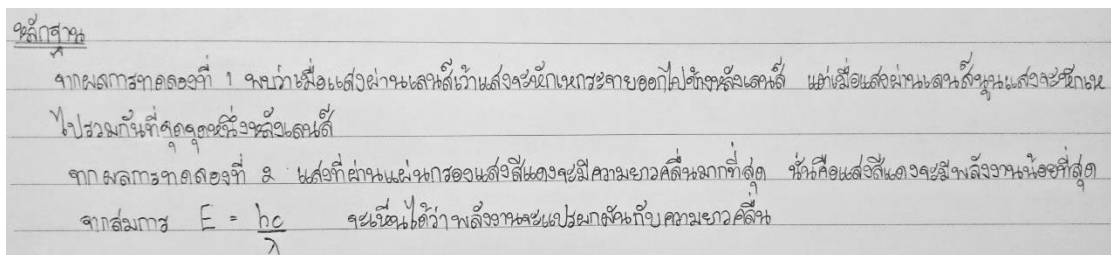 หลักฐาน
จากผลการทดลองที่ 1 พบว่าเมื่อแสงผ่านเลนส์เว้าแสงจะหักเหกระจายออกไปข้างหลังเลนส์ แต่เมื่อแสงผ่านเลนส์นูนแสงจะหักเห
ไปรวมกันที่จุดจุดหนึ่งหลังเลนส์
จากผลการทดลองที่ 2 แสงที่ผ่านแผ่นกรองแสงสีแดงจะมีความยาวคลื่นมากที่สุด นั่นคือแสงสีแดงจะมีพลังงานน้อยที่สุด
จากสมการ E = hc/λ จะเห็นได้ว่าพลังงานจะแปรผกผันกับความยาวคลื่น